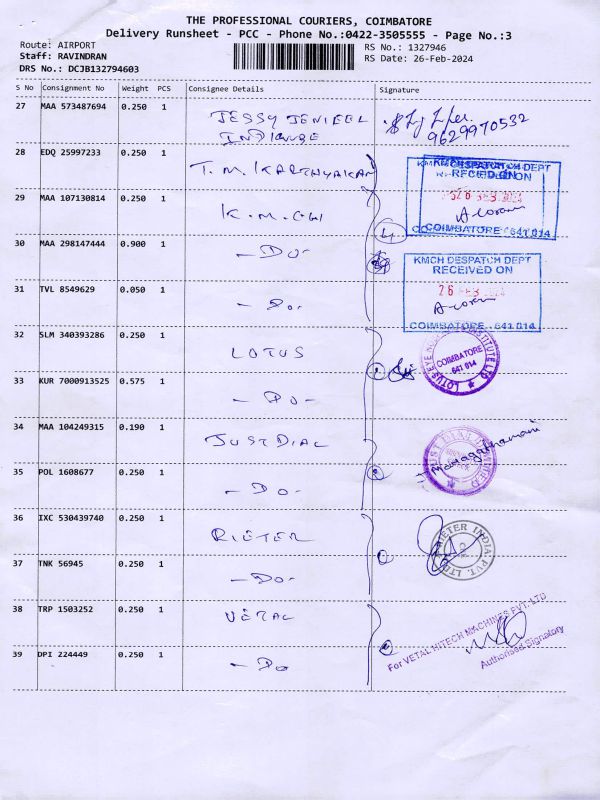 THE PROFESSIONAL COURIERS, COIMBATORE
Delivery Runsheet - PCC - Phone No.:0422-3505555 - Page No.:3
Route: AIRPORT
Staff: RAVINDRAN
DRS No.: DCJB132794603
RS No.: 1327946
RS Date: 26-Feb-2024
S No Consignment No Weight PCS Consignee Details Signature
27 MAA 573487694 0.250 1 JESSY
9629970532
28 EDQ 25997233 0.250 1 T.M. KARTHYAKAN
KMCH DESPATCH DEPT
RECEIVED ON
26 FEB 2024
COIMBATORE - 641 014
29 MAA 107130814 0.250 1 K.M.CH
4
30 MAA 298147444 0.900 1 - Do -
KMCH DESPATCH DEPT
RECEIVED ON
26 FEB 2024
COIMBATORE - 641 014
31 TVL 8549629 0.050 1 - Do -
32 SLM 340393286 0.250 1 LOTUS
LOTUS EYE INSTITUTE LTD
COIMBATORE
641 014
33 KUR 7000913525 0.575 1 - Do -
34 MAA 104249315 0.190 1 JUSTDIAL
JUST DIAL LIMITED
35 POL 1608677 0.250 1 - Do -
36 IXC 530439740 0.250 1 RIETER
RIETER INDIA PVT. LTD
37 TNK 56945 0.250 1 - Do -
38 TRP 1503252 0.250 1 VETAL
For VETAL HITECH MACHINES PVT. LTD
Authorised Signatory
39 DPI 224449 0.250 1 - Do